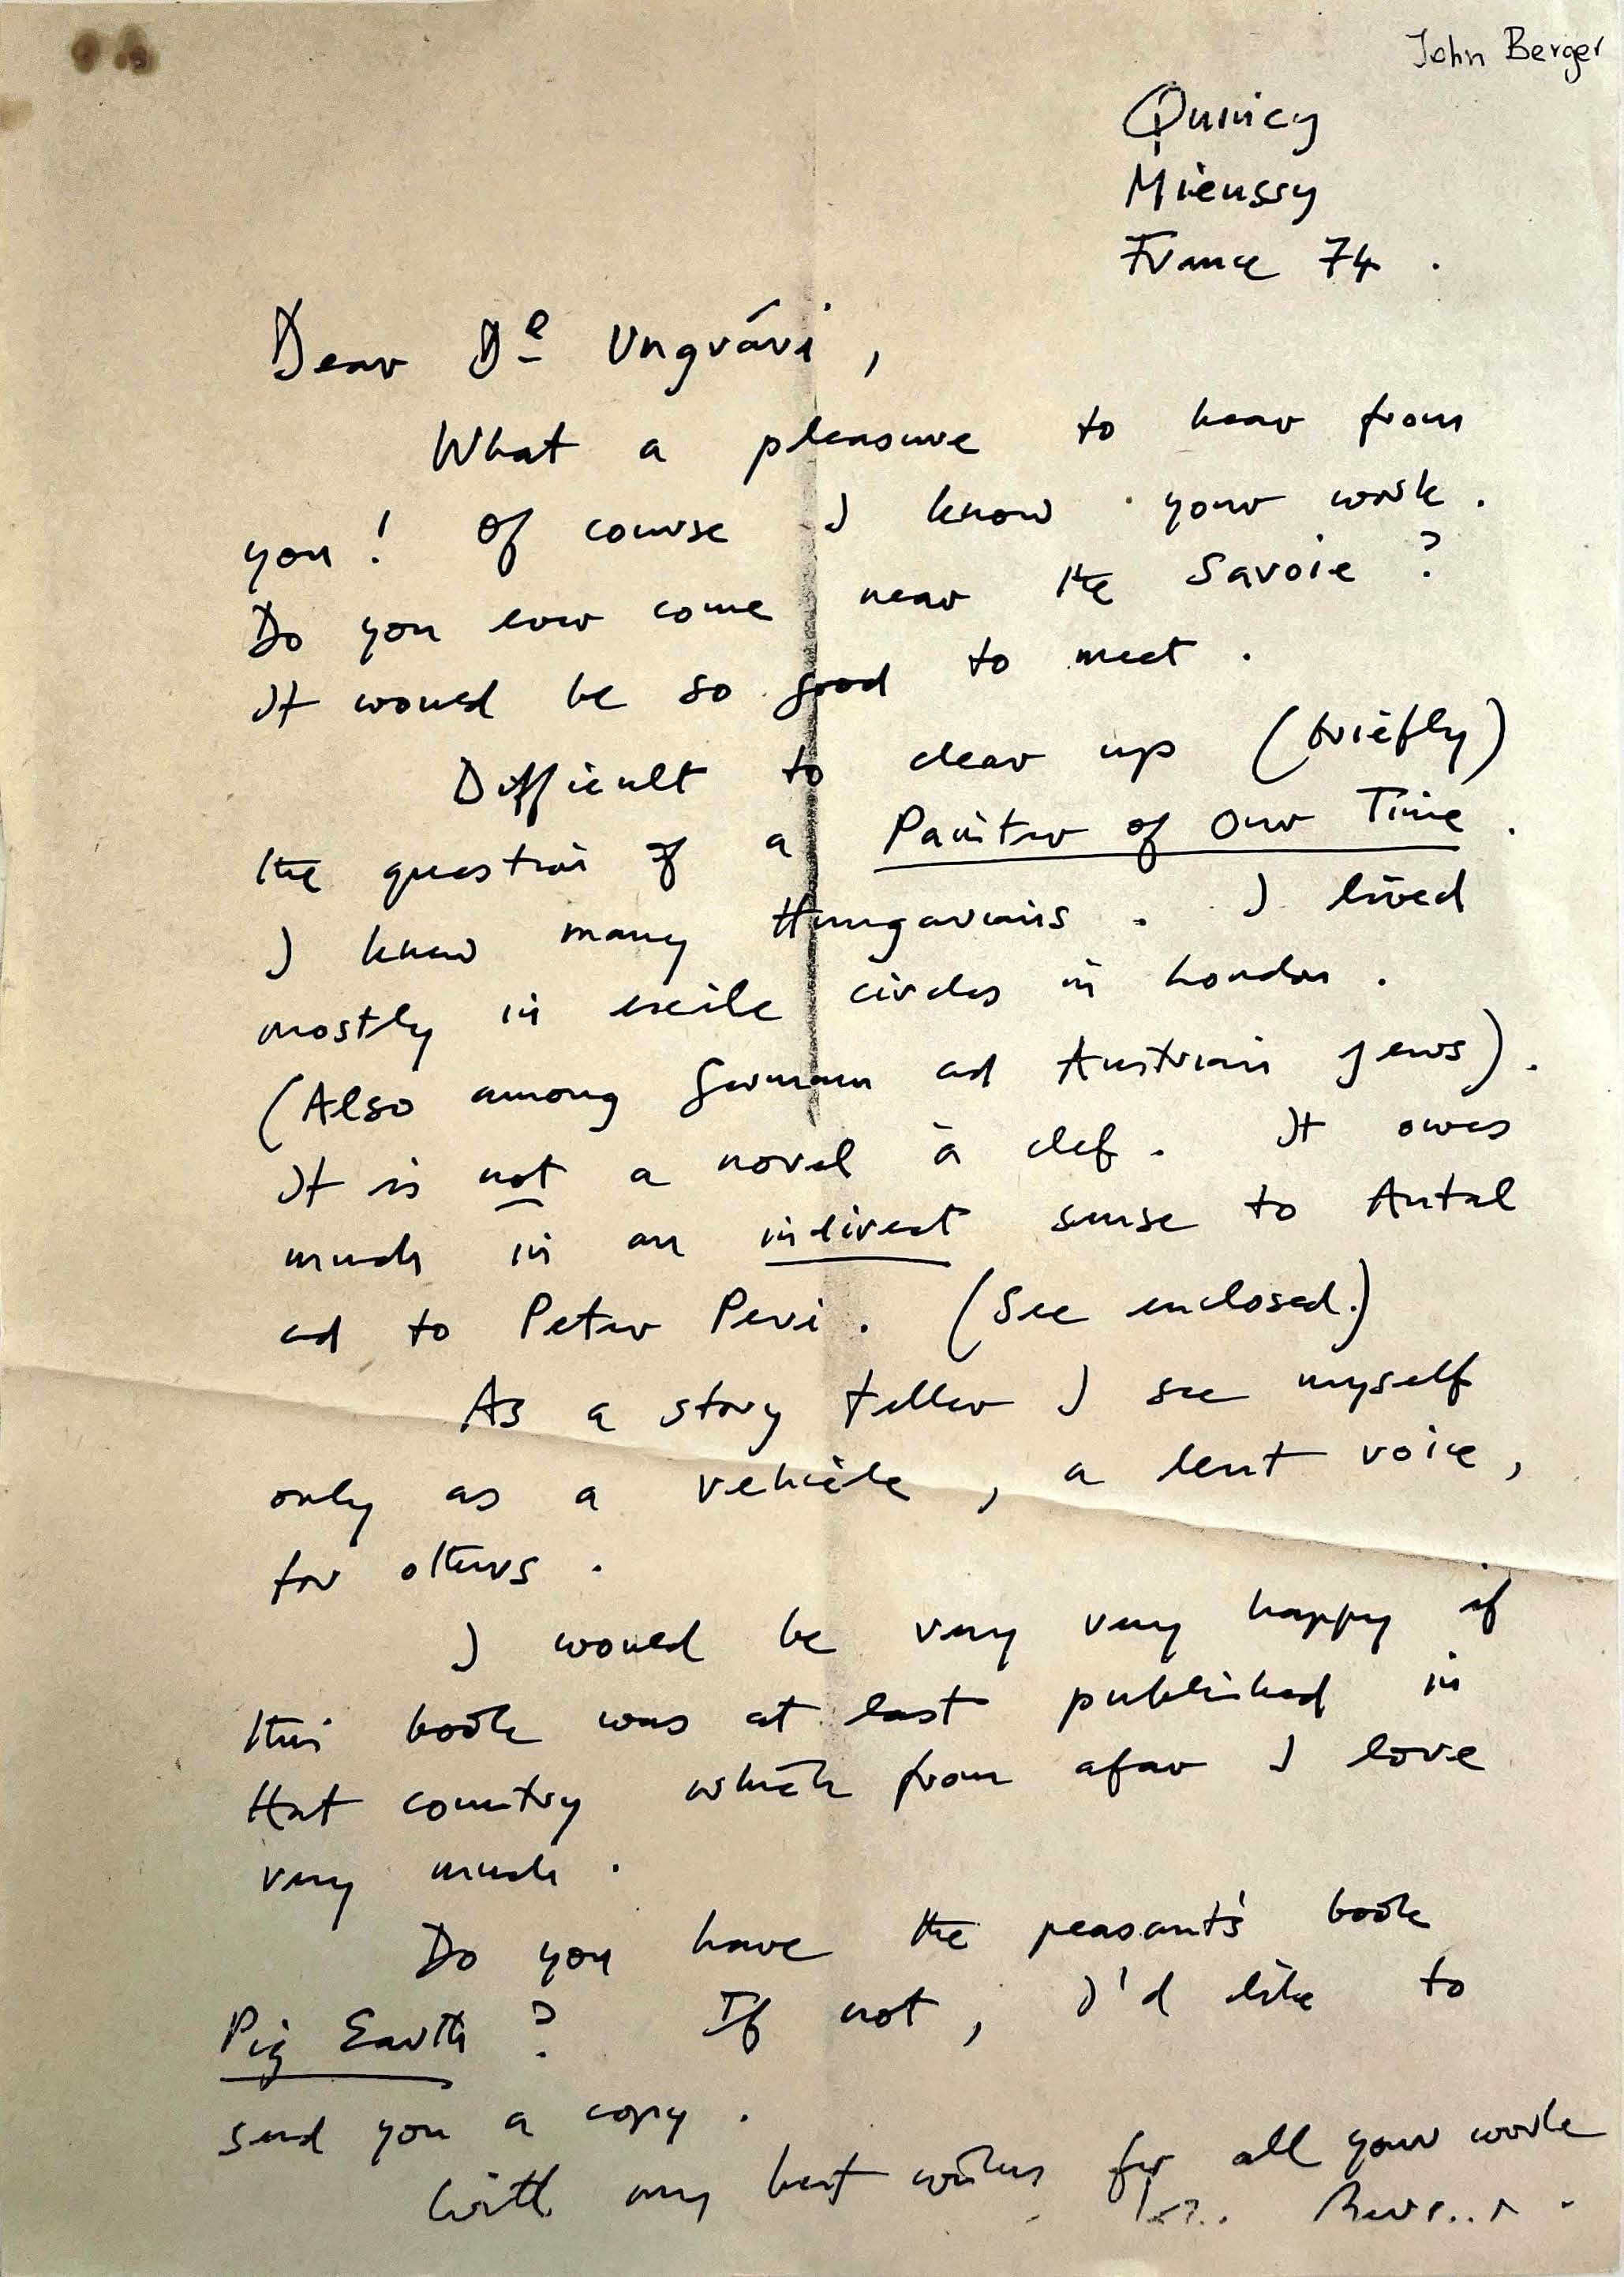 John Berger
Quincy
Mieussy
France 74.
Dear Dr Ungvári,
What a pleasure to hear from
you! Of course I know your work.
Do you ever come near the Savoie?
It would be so good to meet.
Difficult to clear up (briefly)
the question of a Painter of Our Time.
I knew many Hungarians. I lived
mostly in exile circles in London.
(Also among German and Austrian Jews).
It is not a novel à clef. It owes
much in an indirect sense to Antal
and to Peter Peri. (See enclosed.)
As a story teller I see myself
only as a vehicle, a lent voice,
for others.
I would be very very happy if
this book was at last published in
that country which from afar I love
very much.
Do you have the peasant's book
Pig Earth? If not, I'd like to
send you a copy.
With my best wishes for all your work